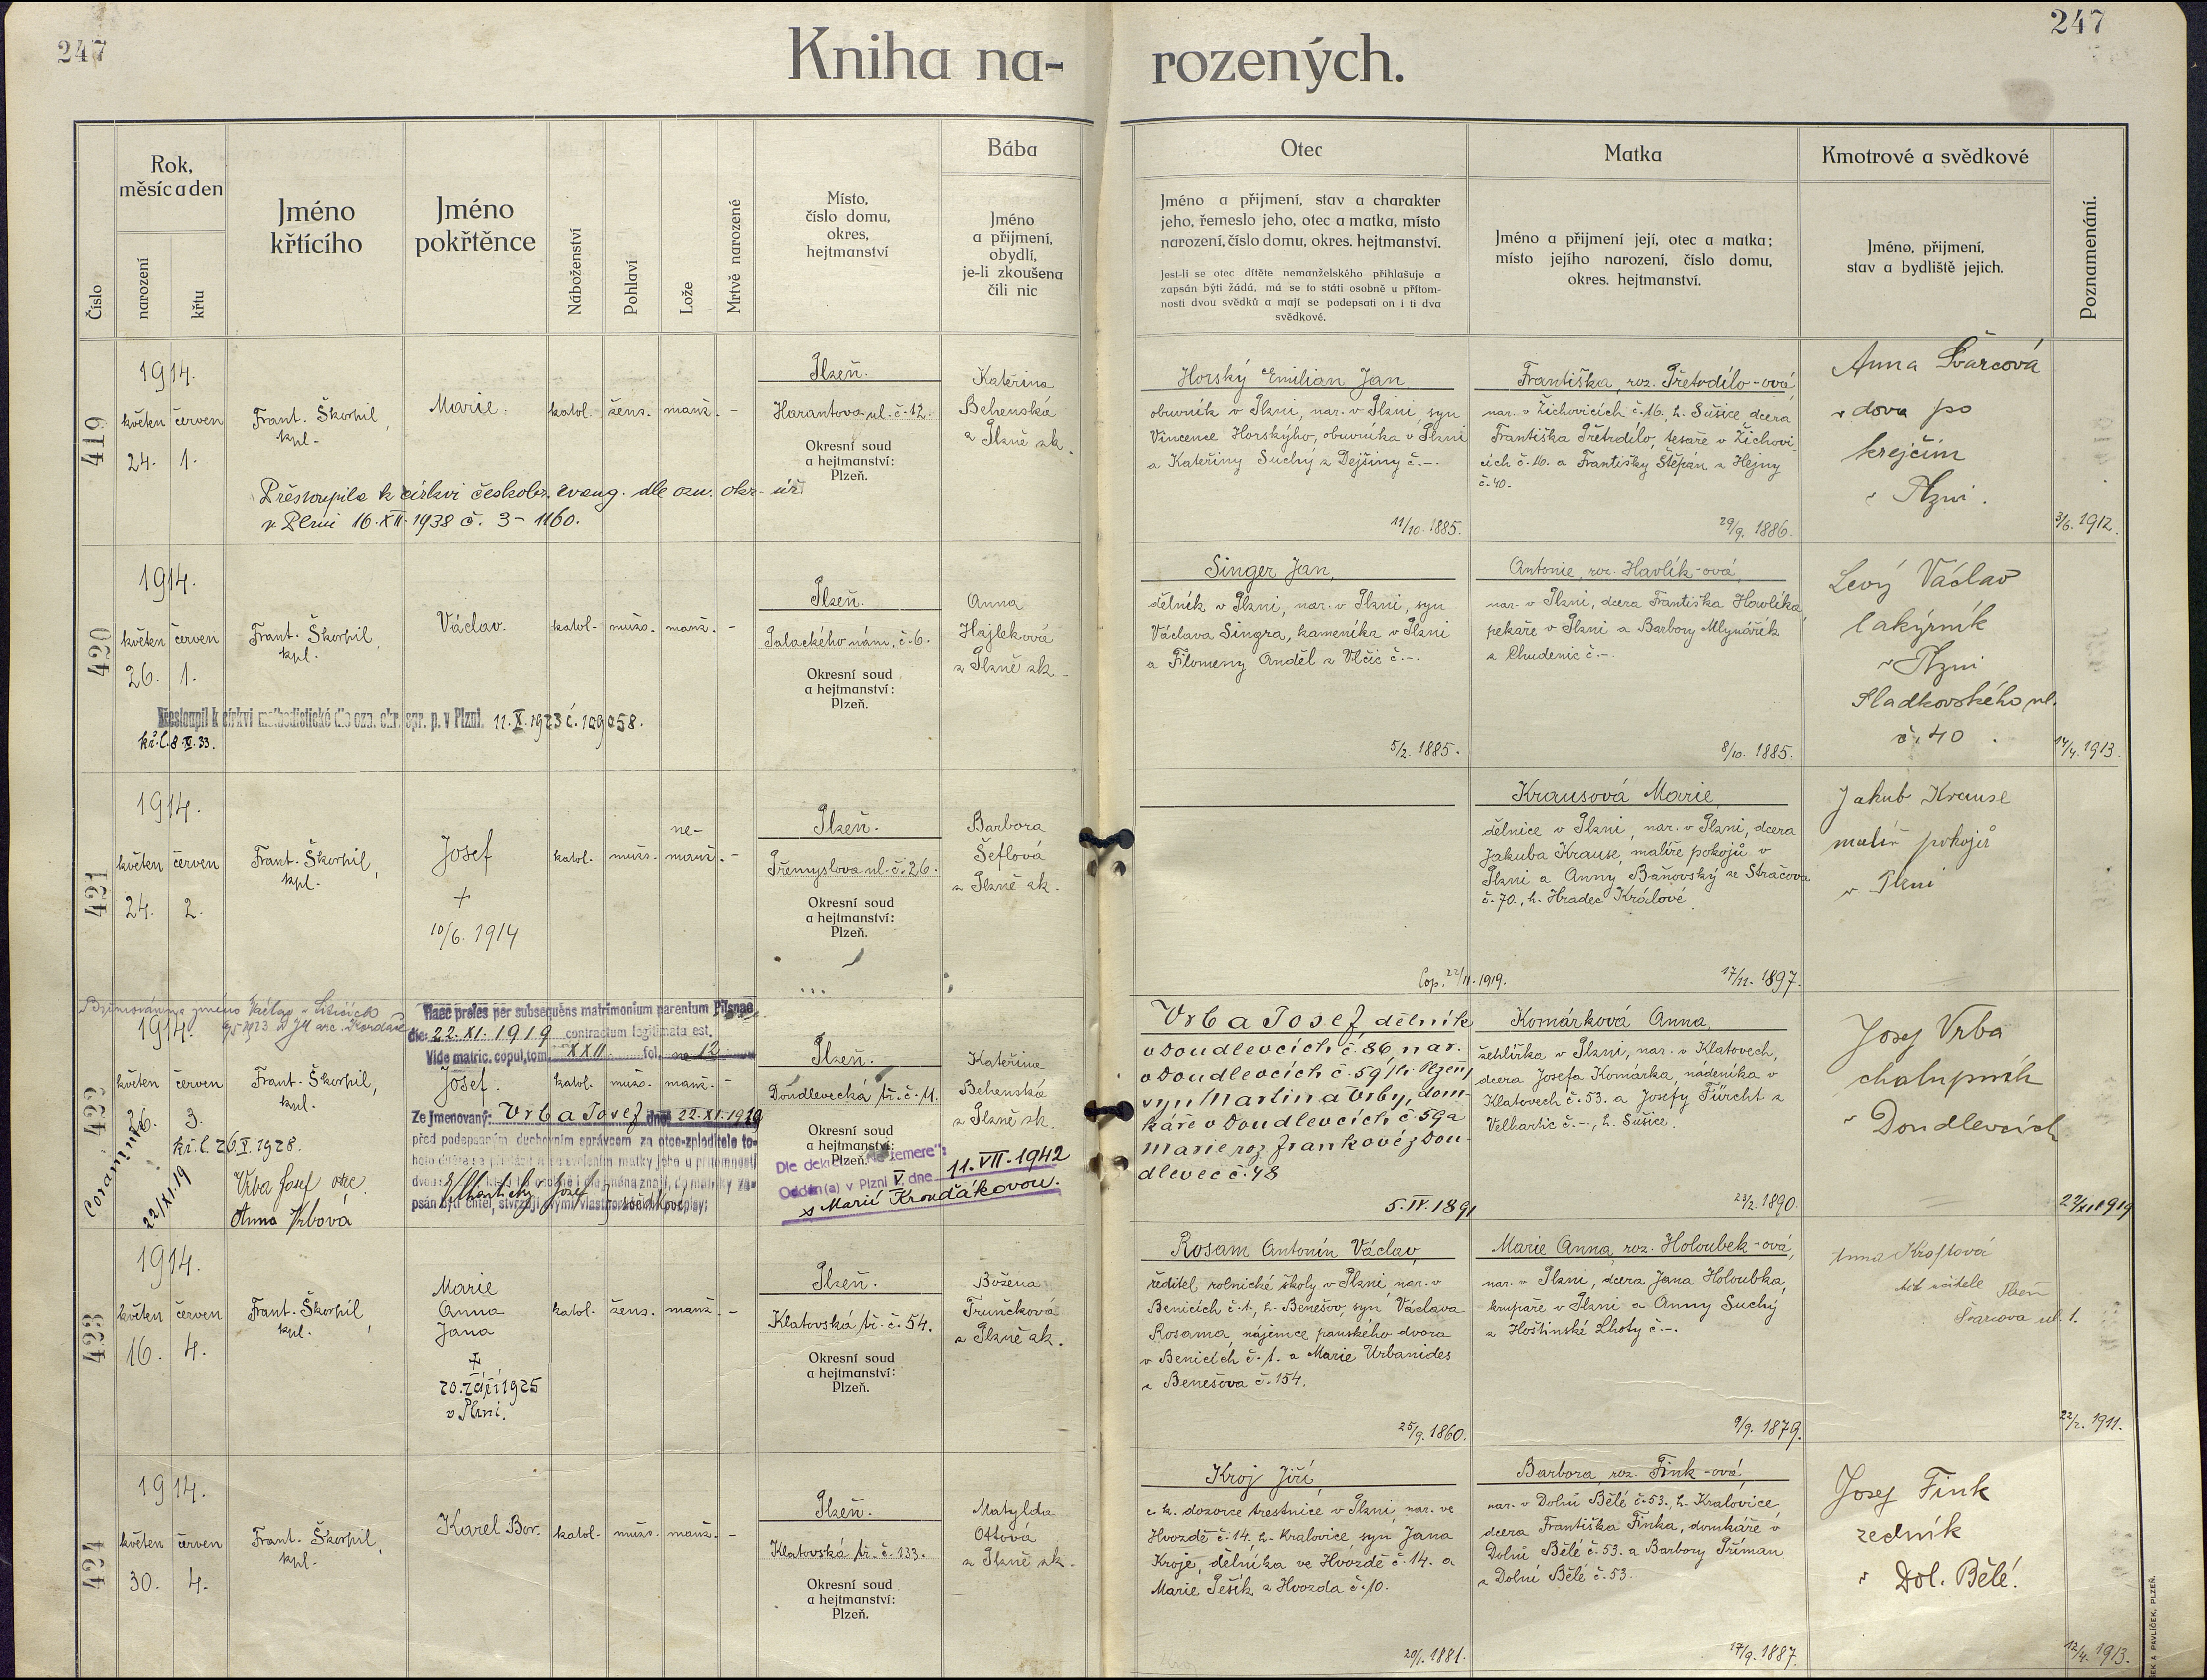 247
247
Kniha na-
rozených.
Číslo
Rok,
měsíc a den
narození
křtu
Jméno
křtícího
Jméno
pokřtěnce
Náboženství
Pohlaví
Lože
Mrtvě narozené
Místo,
číslo domu,
okres,
hejtmanství
Bába
Jméno
a přijmení,
obydlí,
je-li zkoušena
čili nic
Otec
Jméno a přijmení, stav a charakter
jeho, řemeslo jeho, otec a matka, místo
narození, číslo domu, okres. hejtmanství.
Jest-li se otec dítěte nemanželského přihlašuje a
zapsán býti žádá, má se to státi osobně u přítom-
nosti dvou svědků a mají se podepsati on i ti dva
svědkové.
Matka
Jméno a přijmení její, otec a matka;
místo jejího narození, číslo domu,
okres. hejtmanství.
Kmotrové a svědkové
Jméno, přijmení,
stav a bydliště jejich.
Poznamenání.
419
1914.
květen červen
24. 1.
Frant. Škorpil,
kpl.
Marie.
katol. žens. manž. -
Plzeň.
Harantova ul. č. 12.
Okresní soud
a hejtmanství:
Plzeň.
Kateřina
Behenská
z Plzně zk.
Přestoupila k církvi českobr. evang. dle ozn. okr. úř.
v Plzni 16.XII.1938 č. 3-1160.
Horský Emilian Jan
obuvník v Plzni, nar. v Plzni syn
Vincence Horskýho, obuvníka v Plzni
a Kateřiny Suchý z Dejšiny č.-.
11/10. 1885.
Františka, roz. Přetrdílo-ová,
nar. v Žichovicích č. 16. h. Sušice dcera
Františka Přetrdílo, tesaře v Žichovi-
cích č. 16. a Františky Štěpán z Hejny
č. 40.
29/9. 1886.
Anna Švarcová
vdova po
krejčím
v Plzni.
3/6. 1912.
420
1914.
květen červen
26. 1.
Frant. Škorpil,
kpl.
Václav.
katol. mužs. manž. -
Plzeň.
Palackého nám. č. 6.
Okresní soud
a hejtmanství:
Plzeň.
Anna
Hajleková
z Plzně zk.
Přestoupil k církvi methodistické dle ozn. okr. spr. p. v Plzni. 11.X.1923 č. 109058.
kř. l. 8.V.33.
Singer Jan,
dělník v Plzni, nar. v Plzni, syn
Václava Singra, kameníka v Plzni
a Filomeny Anděl z Vlčic č.-.
5/2. 1885.
Antonie, roz. Havlík-ová,
nar. v Plzni, dcera Františka Havlíka,
pekaře v Plzni a Barbory Mlynářík
z Chudenic č.-.
8/10. 1885.
Levý Václav
lakýrník
v Plzni
Sladkovského ul.
č. 40.
14/4. 1913.
421
1914.
květen červen
24. 2.
Frant. Škorpil,
kpl.
Josef
+
10/6. 1914
katol. mužs. ne-
manž. -
Plzeň.
Přemyslova ul. č. 26.
Okresní soud
a hejtmanství:
Plzeň.
Barbora
Šeflová
z Plzně zk.
Krausová Marie,
dělnice v Plzni, nar. v Plzni, dcera
Jakuba Krause, malíře pokojů v
Plzni a Anny Baňovský ze Stračova
č. 70., h. Hradec Králové.
17/11. 1897.
Jakub Krause
malíř pokojů
v Plzni
422
Biřmováním jméno Václav
1914.
květen červen
26. 3.
kř. l. 26.V.1928.
Coram me
22/XI.19
Frant. Škorpil,
kpl.
Vrba Josef otec.
Anna Vrbová
Haec proles per subsequens matrimonium parentum Pilsnae
die 22.XI.1919 contractum legitimata est.
Vide matric. copul. tom. XXII fol. 12
Josef.
katol. mužs. manž. -
Ze jmenovaný: Vrba Josef dne 22.XI.1919
před podepsaným duchovním správcem za otce-zploditele to-
hoto dítěte se přihlásil a se svolením matky jeho u přítomnosti
psán býti chtěl, stvrzují svými vlastnoručními podpisy:
Plzeň.
Doudlevecká tř. č. 11.
Okresní soud
a hejtmanství:
Plzeň.
Oddán(a) v Plzni V. dne 11.VII.1942
s Marií Krouďákovou.
Kateřina
Behenská
z Plzně zk.
Cop. 22/11.1919.
Vrba Josef, dělník
v Doudlevcích č. 86, nar.
v Doudlevcích č. 59, h. Plzeň,
syn Martina Vrby, dom-
káře v Doudlevcích č. 59 a
Marie roz. Frankové z Dou-
dlevec č. 48
5.IV.1891
Komárková Anna,
žehlířka v Plzni, nar. v Klatovech,
dcera Josefa Komárka, nádeníka v
Klatovech č. 53. a Josefy Fürcht z
Velhartic č.-., h. Sušice.
23/2. 1890.
Josef Vrba
chalupník
v Doudlevcích
22/XI 1919
423
1914.
květen červen
16. 4.
Frant. Škorpil,
kpl.
Marie
Anna
Jana
+
20. září 1925
v Plzni.
katol. žens. manž. -
Plzeň.
Klatovská tř. č. 54.
Okresní soud
a hejtmanství:
Plzeň.
Božena
Trunčková
z Plzně zk.
Rosam Antonín Václav,
ředitel rolnické školy v Plzni, nar. v
Benicích č. 1., h. Benešov, syn Václava
Rosama, nájemce panského dvora
v Benicích č. 1. a Marie Urbanides
z Benešova č. 154.
25/9. 1860.
Marie Anna, roz. Holoubek-ová,
nar. v Plzni, dcera Jana Holoubka,
krupaře v Plzni a Anny Suchý
z Hoštinské Lhoty č.-.
9/9. 1879.
Anna Kroftová
učitele Plzeň
Švarcova ul. 1.
22/2. 1911.
424
1914.
květen červen
30. 4.
Frant. Škorpil,
kpl.
Karel Bor.
katol. mužs. manž. -
Plzeň.
Klatovská tř. č. 133.
Okresní soud
a hejtmanství:
Plzeň.
Matylda
Ottová
z Plzně zk.
Kroj Jiří,
c. k. dozorce trestnice v Plzni, nar. ve
Hvozdě č. 14, h. Kralovice, syn Jana
Kroje, dělníka ve Hvozdě č. 14. a
Marie Pešík z Hvozda č. 10.
20/1. 1881.
Barbora, roz. Fink-ová,
nar. v Dolní Bělé č. 53., h. Kralovice,
dcera Františka Finka, domkáře v
Dolní Bělé č. 53. a Barbory Příman
z Dolní Bělé č. 53.
17/9. 1887.
Josef Fink
řezník
v Dol. Bělé.
12/4. 1913.
A PAVLÍČEK, PLZEŇ.